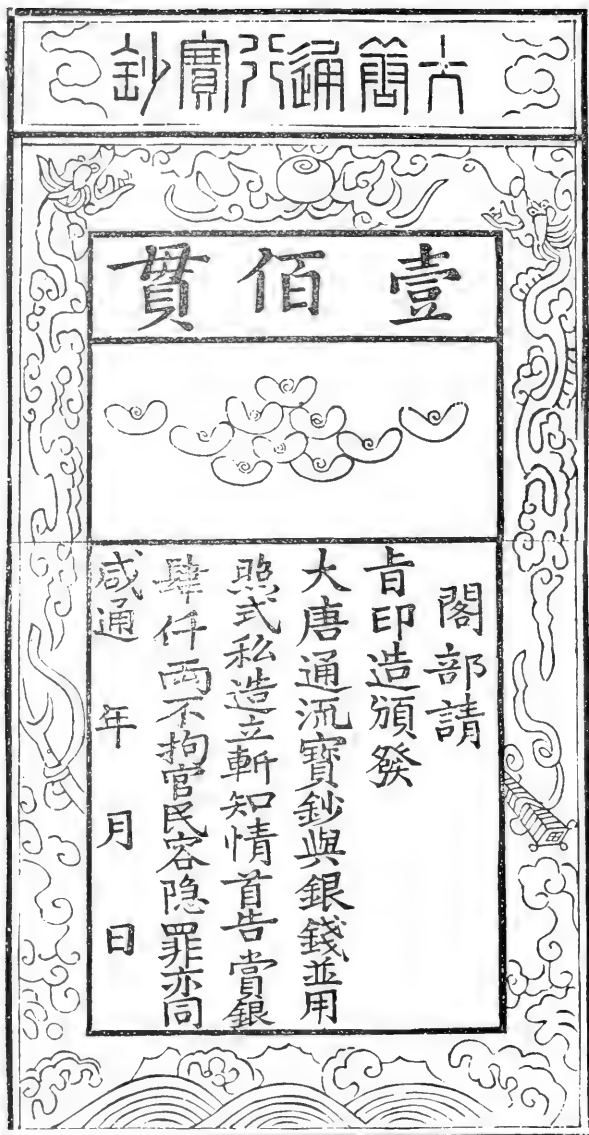 大唐通行寶鈔
壹佰貫
閣部請
旨印造頒發
大唐通流寶鈔與銀錢並用
照式私造立斬知情首告賞銀
肆仟兩不拘官民容隐罪亦同
咸通 年 月 日